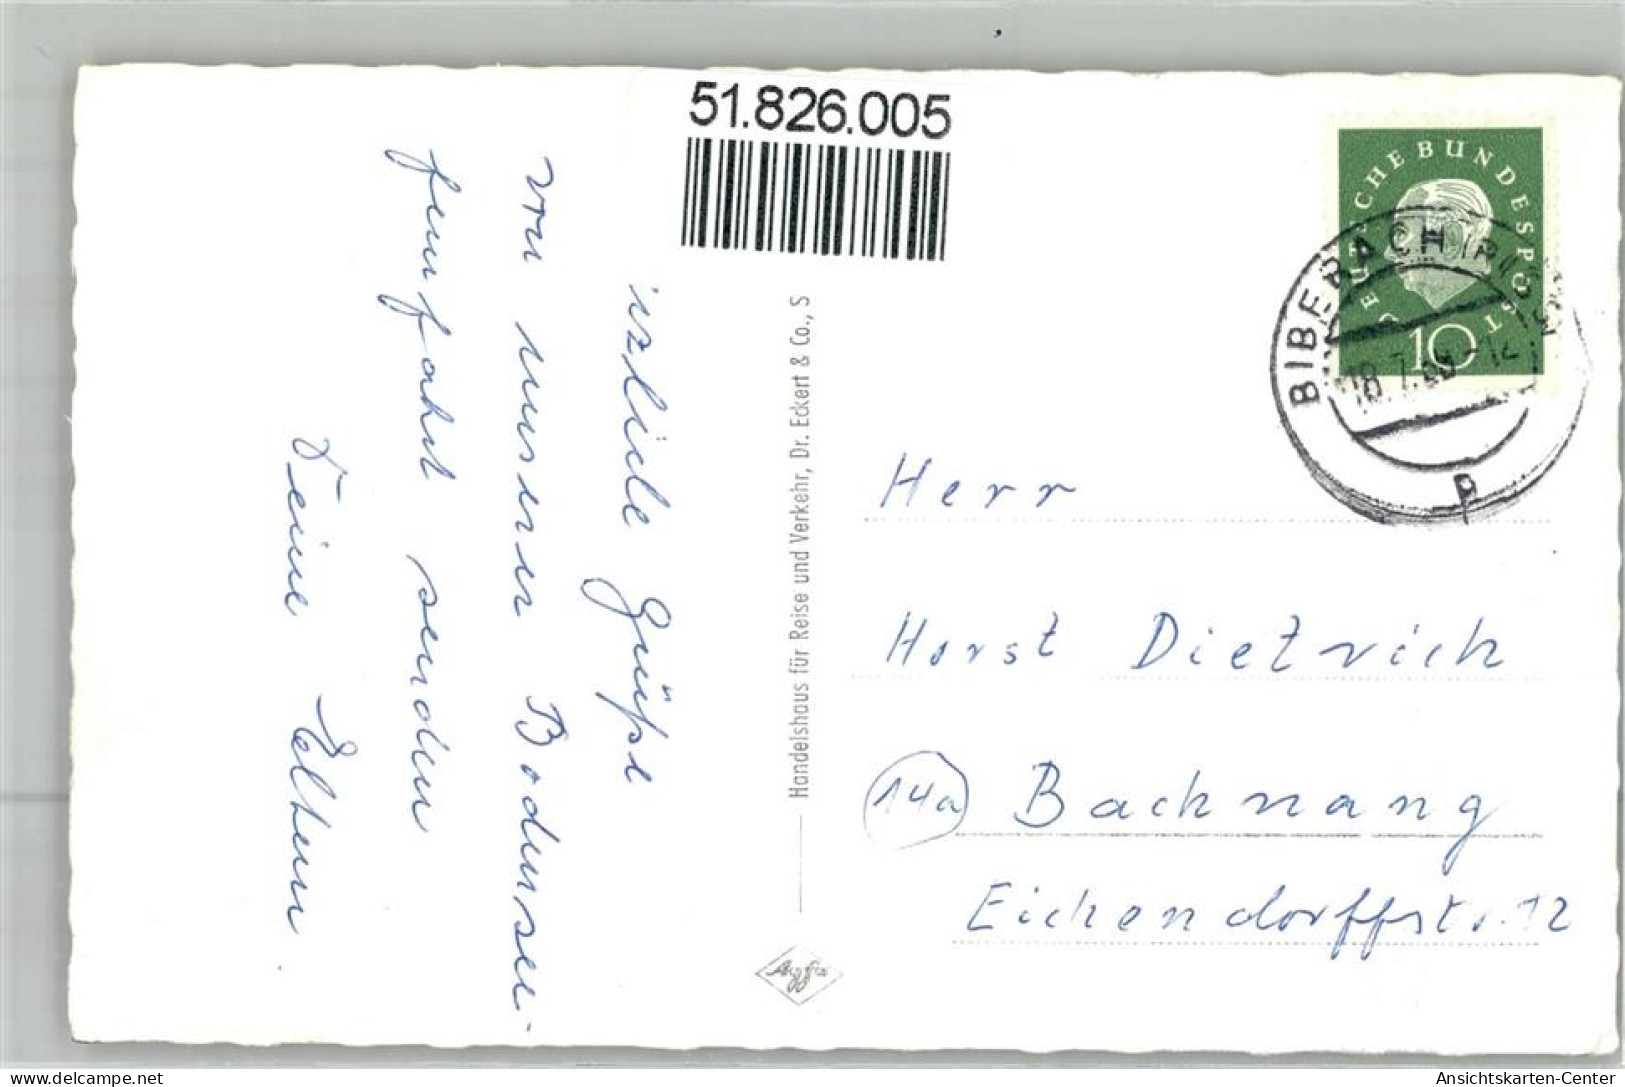 51.826.005
DEUTSCHE BUNDESPOST
10
BIBERACH (RISS)
18.7.60-12
p
rzliche Grüße
von unserer Bodensee-
fernfahrt senden
Deine Eltern
Handelshaus für Reise und Verkehr, Dr. Eckert & Co., S
Agfa
Herr
Horst Dietrich
14a Backnang
Eichendorffstr. 12
delcampe.net
Ansichtskarten-Center